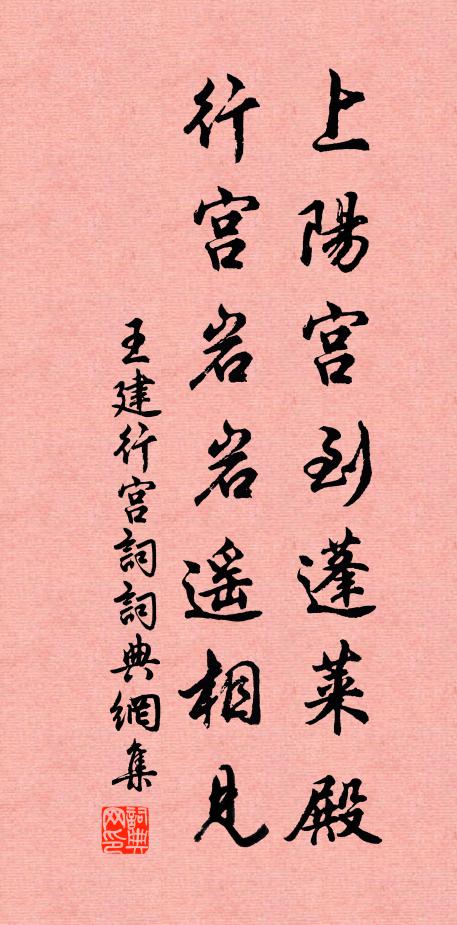 上陽宫到蓬莱殿
行宫岩岩遥相見
王建行宫詞詞典網集
詞典网印